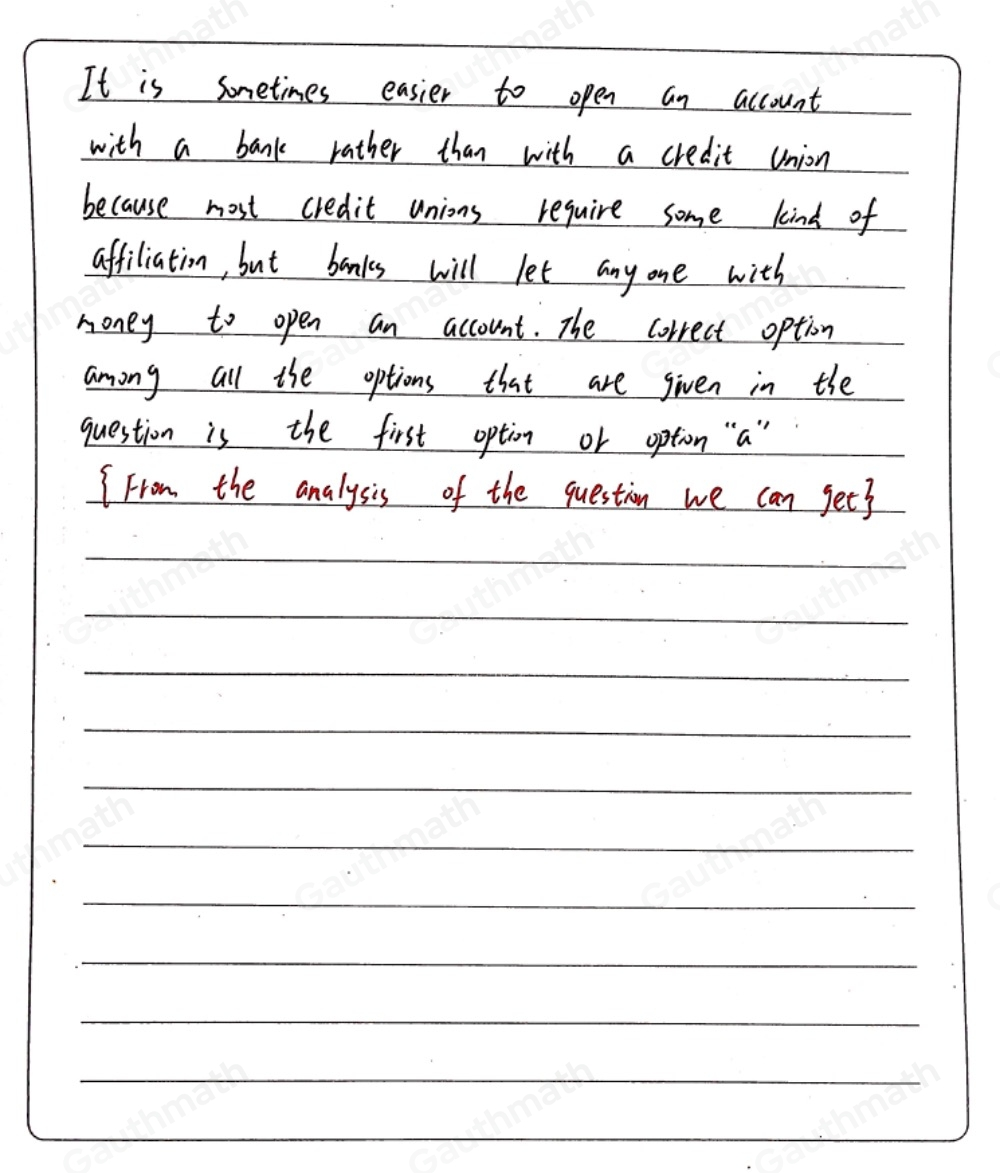 It is sometimes easier to open an account
with a bank rather than with a credit union
because most credit unions require some kind of
affiliation, but banks will let anyone with
money to open an account. The correct option
among all the options that are given in the
question is the first option or option "a"
{From the analysis of the question we can get}
Gauthmath